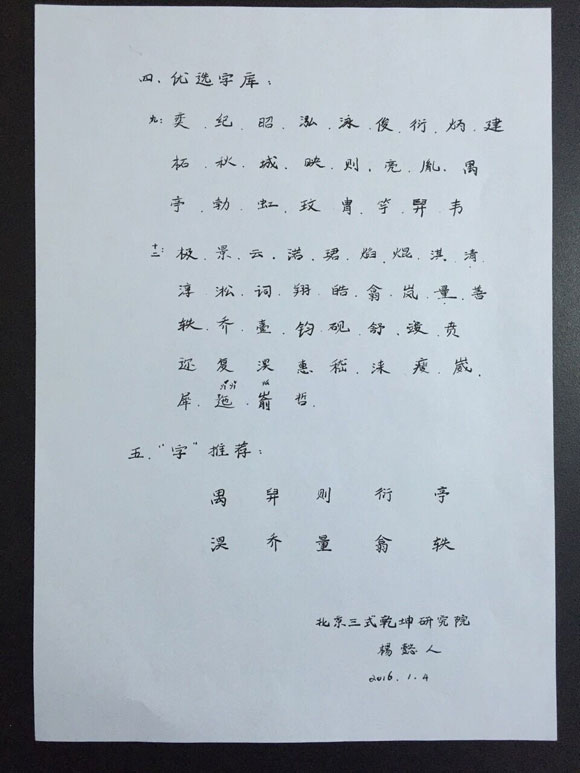 四.优选字库:
九:奕.纪.昭.泓.泳.俊.衍.炳.建
柘.秋.城.映.则.亮.胤.禺
亭.勃.虹.玟.胄.竽.羿.韦
十二:极.景.云.浩.珺.焰.焜.淇.清
淳.淞.词.翔.皓.翕.岚.量.善
轶.乔.壹.钧.砚.舒.竣.贲
还 复 淏 惠 嵇.涞 瘦 崴.
犀. 迤 哲.
五."字"推荐:
禺 羿 则 衍 亭
淏 乔 量 翕 轶
北京三式乾坤研究院
杨懿人
2016.1.4